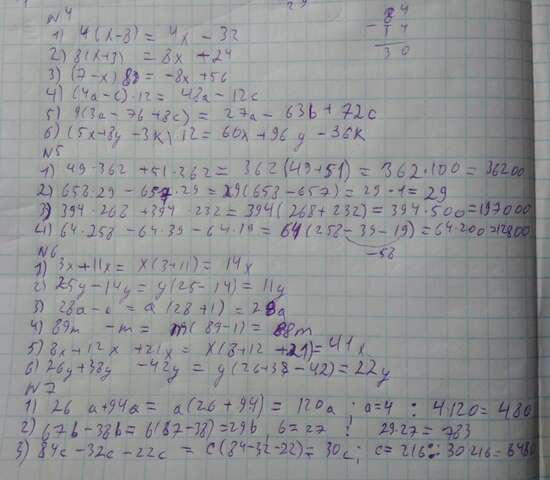 N4
1) 4(x-8) = 4x - 32
84
- 14
30
2) 8(x+3) = 8x + 24
3) (7-x) 8 = -8x+56
4) (4a-c)·12 = 48a - 12c
5) 9(3a-7b+8c) = 27a - 63b + 72c
6) (5x+8y-3k) 12 = 60x+96y - 36k
N5
1) 49·362 + 51·362 = 362(49+51) = 362·100 = 36200
2) 658·29 - 657·29 = 29(658-657) = 29·1 = 29
3) 394·268 + 394·232 = 394(268+232) = 394·500 = 197000
4) 64·258 - 64·39 - 64·19 = 64(258-39-19) = 64·200 = 12800
-58
N6
1) 3x+11x = x(3+11) = 14x
2) 25y-14y = y(25-14) = 11y
3) 28a-a = a(28+1) = 29a
4) 89m - m = m(89-1) = 88m
5) 8x+12x+21x = x(8+12+21) = 41x
6) 26y+38y-42y = y(26+38-42) = 22y
N7
1) 26a+94a = a(26+94) = 120a; a=4 : 4·120 = 480
2) 67b-38b = b(67-38) = 29b b=27 ; 29·27 = 783
3) 84c-32c-22c = c(84-32-22) = 30c; c=216: 30·216 = 6480